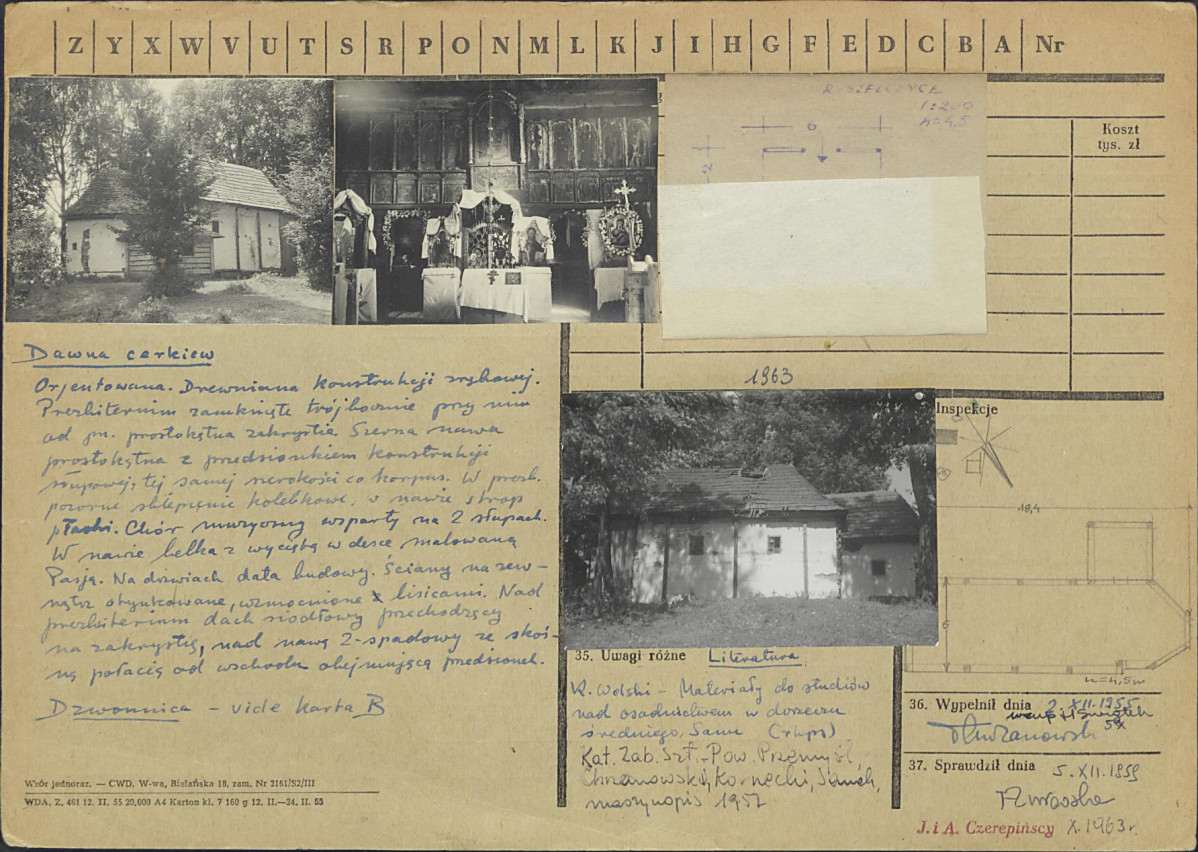 Z Y X W V U T S R P O N M L K J I H G F E D C B A Nr
SZELCZYCE
1:200
h=4,5
6
2
Koszt
tys. zł
1963
Dawna cerkiew
Orjentowana. Drewniana konstrukcji zrębowej.
Prezbiterium zamknięte trójbocznie przy nim
od pn. prostokątna zakrystia. Szeroka nawa
prostokątna z przedsionkiem konstrukcji
słupowej, tej samej szerokości co korpus. W prezb.
pozorne sklepienie kolebkowe, w nawie strop
płaski. Chór muzyczny wsparty na 2 słupach.
W nawie belka z wyciętą w desce, malowaną
Pasją. Na drzwiach data budowy. Ściany na zew-
nątrz otynkowane, wzmocnione lisicami. Nad
prezbiterium dach siodłowy przechodzący
na zakrystię, nad nawą 2-spadowy ze skoś-
ną połacią od wschodu obejmującą przedsionek.
Dzwonnica - vide karta B
Wzór jednoraz. — CWD, W-wa, Bielańska 18, zam. Nr 2161/S2/III
WDA. Z. 461 12. II. 55 20,000 A4 Karton kl. 7 160 g 12. II.—24. II. 55
Inspekcje
18,4
6
h=4,5m
35. Uwagi różne Literatura
K. Wolski - Materiały do studiów
nad osadnictwem w dorzeczu
średniego Sanu (rkps)
Kat. Zab. Szt. - Pow. Przemyśl,
Chrzanowski, Kornecki, Samek,
maszynopis 1957
36. Wypełnił dnia 2.XII.1955
37. Sprawdził dnia 5.XII.1959
J. i A. Czerepińscy X.1963 r.